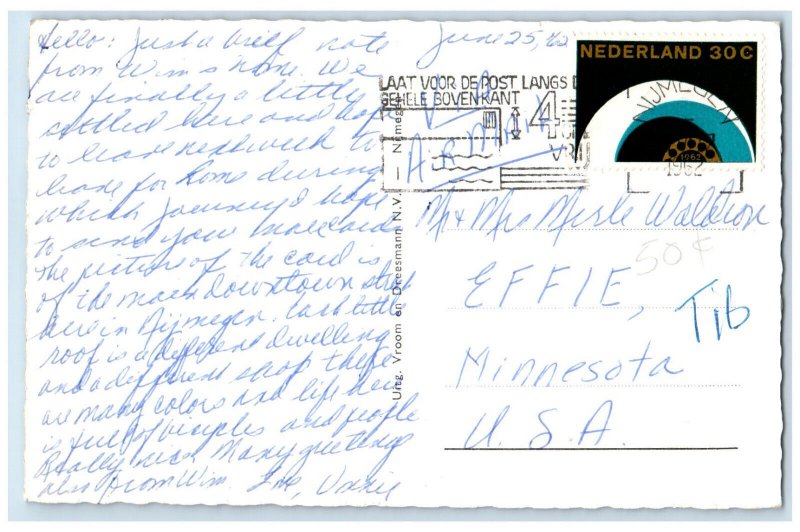 Hello: Just a brief note
from Wim's home. We
are finally a little
settled here and hope
to leave next week to
leave for Roms during
which journey I hope
to send you more cards
The picture of the card is
of the main downtown street
here in Nijmegen. Each little
roof is a different dwelling
and a different shop there
are many colors and life here
is full of bicycles and people
Really nice. Many greetings
also from Wim. Love,
June 25, 62
NEDERLAND 30 C
1962
LAAT VOOR DE POST LANGS D
GEHELE BOVENKANT
4
VRIJ
NIJMEGEN
1962
AIRMAIL
Mr & Mrs Merle Waldron
50¢
EFFIE,
Tib
Minnesota
U. S. A.
Uitg. Vroom en Dreesmann N.V. — Nijmegen